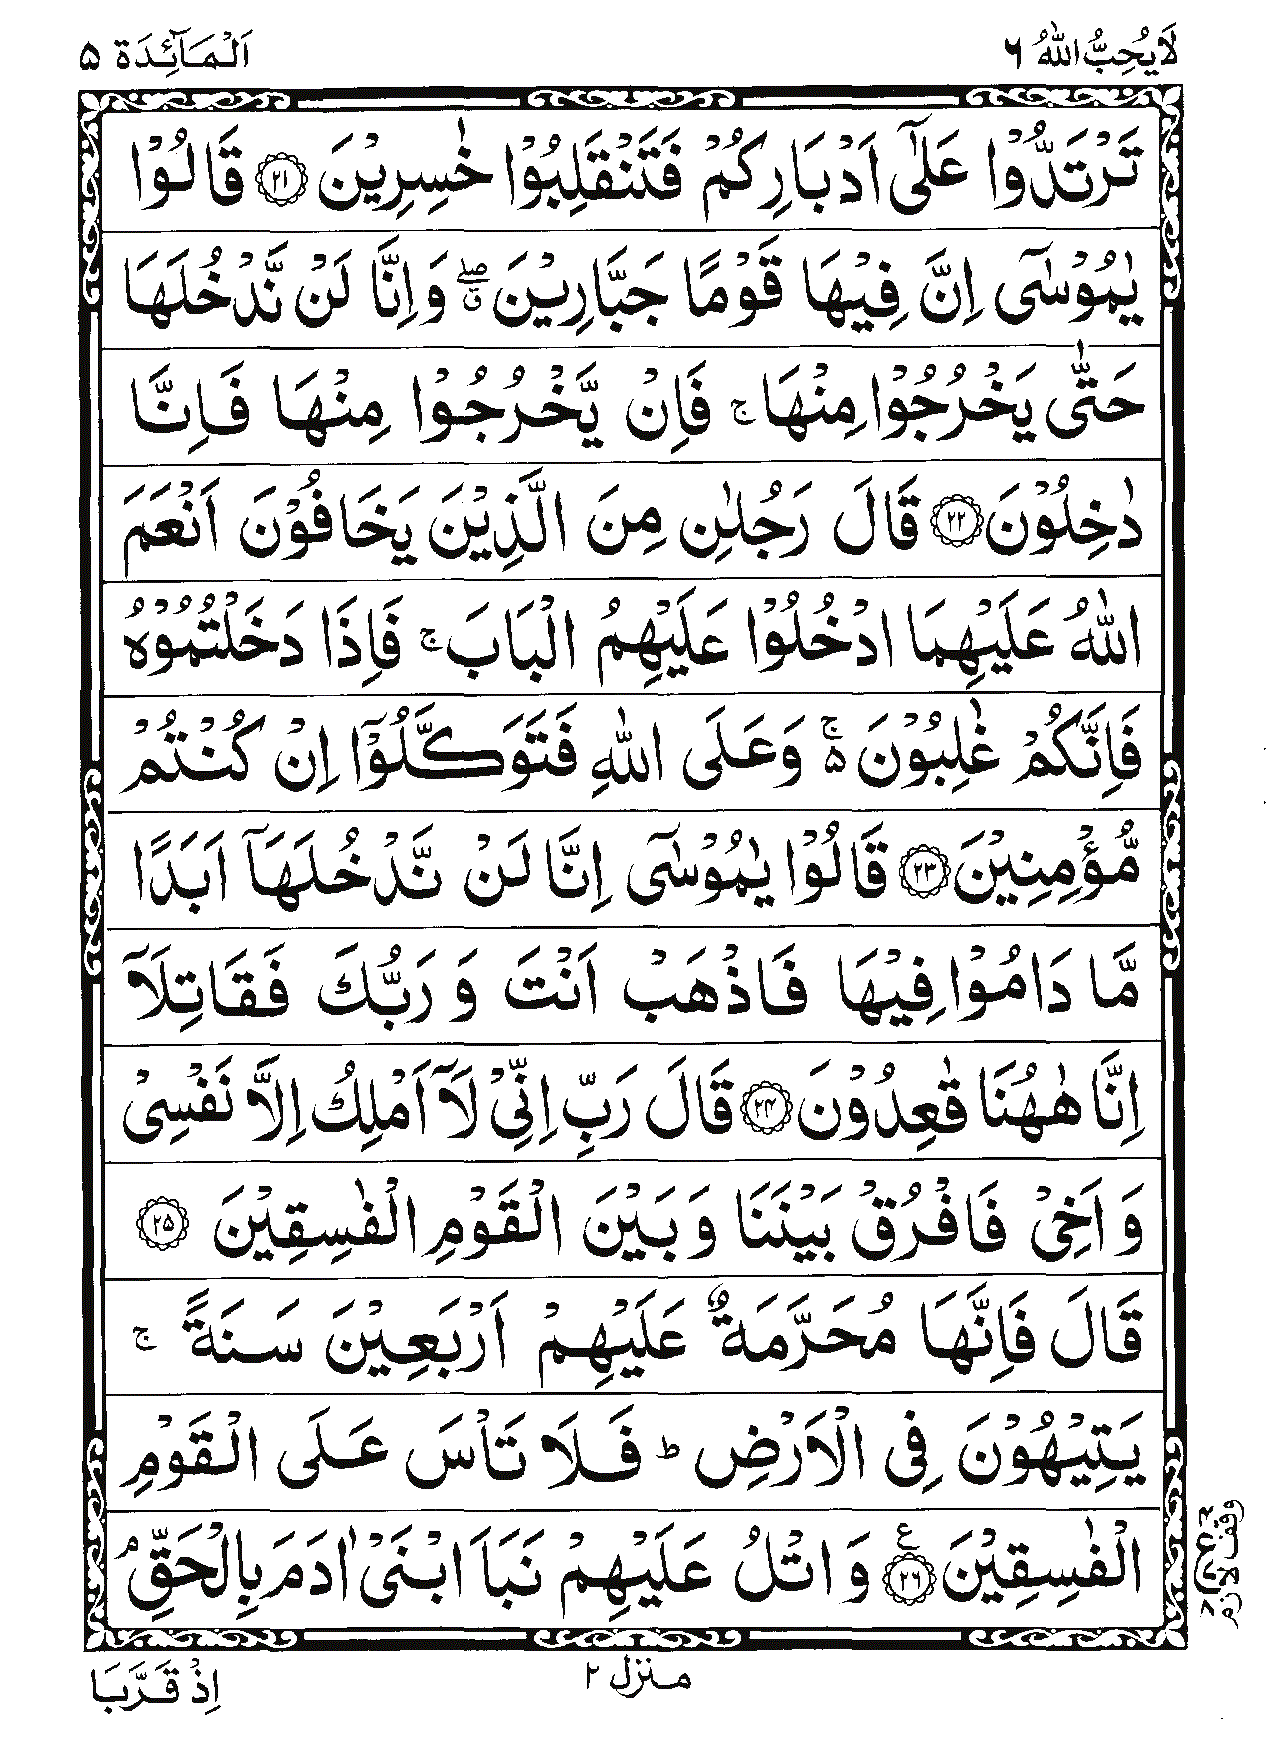 لَا يُحِبُّ اللّٰهُ ٦
اَلْمَآئِدَة ٥
تَرْتَدُّوْا عَلٰٓى اَدْبَارِكُمْ فَتَنْقَلِبُوْا خٰسِرِيْنَ ﴿٢١﴾ قَالُوْا
يٰمُوْسٰٓى اِنَّ فِيْهَا قَوْمًا جَبَّارِيْنَ ۖ ق وَاِنَّا لَنْ نَّدْخُلَهَا
حَتّٰى يَخْرُجُوْا مِنْهَا ۚ فَاِنْ يَّخْرُجُوْا مِنْهَا فَاِنَّا
دٰخِلُوْنَ ﴿٢٢﴾ قَالَ رَجُلٰنِ مِنَ الَّذِيْنَ يَخَافُوْنَ اَنْعَمَ
اللّٰهُ عَلَيْهِمَا ادْخُلُوْا عَلَيْهِمُ الْبَابَ ۚ فَاِذَا دَخَلْتُمُوْهُ
فَاِنَّكُمْ غٰلِبُوْنَ ۵ ۚ وَعَلَى اللّٰهِ فَتَوَكَّلُوْٓا اِنْ كُنْتُمْ
مُّؤْمِنِيْنَ ﴿٢٣﴾ قَالُوْا يٰمُوْسٰٓى اِنَّا لَنْ نَّدْخُلَهَآ اَبَدًا
مَّا دَامُوْا فِيْهَا فَاذْهَبْ اَنْتَ وَرَبُّكَ فَقَاتِلَآ
اِنَّا هٰهُنَا قٰعِدُوْنَ ﴿٢٤﴾ قَالَ رَبِّ اِنِّىْ لَآ اَمْلِكُ اِلَّا نَفْسِىْ
وَاَخِىْ فَافْرُقْ بَيْنَنَا وَبَيْنَ الْقَوْمِ الْفٰسِقِيْنَ ﴿٢٥﴾
قَالَ فَاِنَّهَا مُحَرَّمَةٌ عَلَيْهِمْ اَرْبَعِيْنَ سَنَةً ۚ
يَتِيْهُوْنَ فِى الْاَرْضِ ؕ فَلَا تَاْسَ عَلَى الْقَوْمِ
الْفٰسِقِيْنَ ﴿٢٦﴾ ع وَاتْلُ عَلَيْهِمْ نَبَاَ ابْنَىْ اٰدَمَ بِالْحَقِّ ۘ
وقف لازم
منزل ٢
اِذْ قَرَّبَا